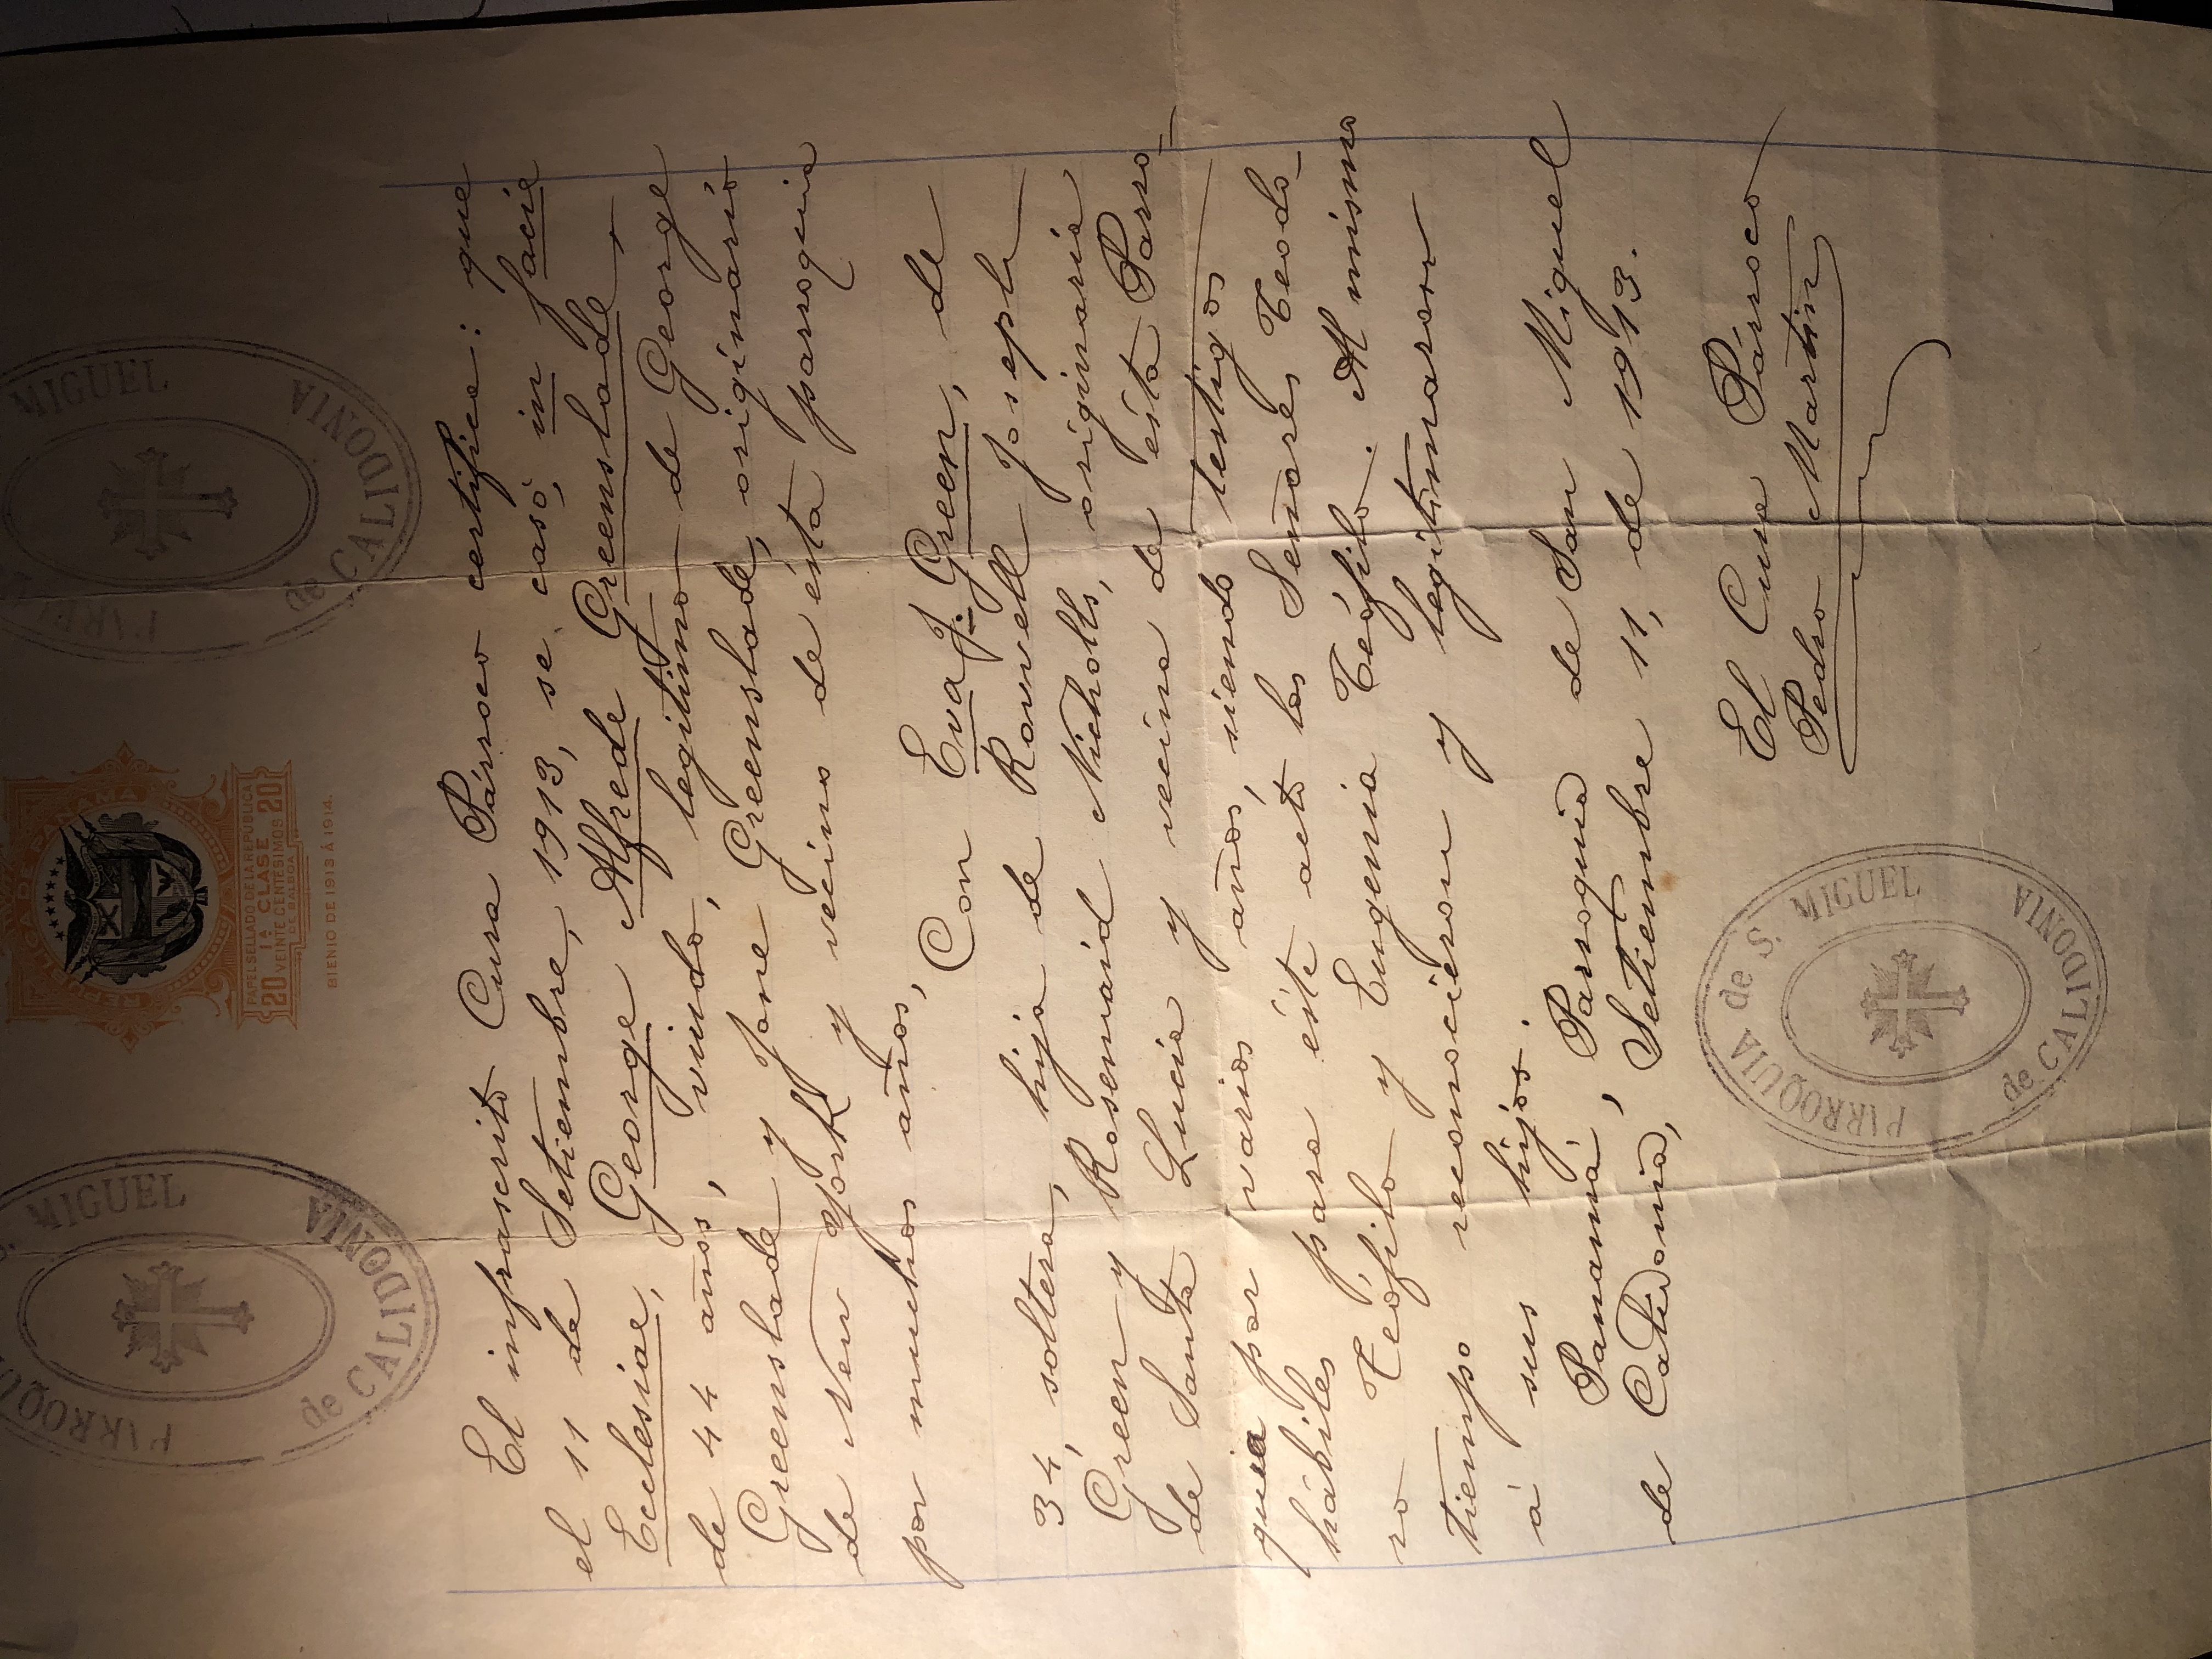 PARROQUIA S. MIGUEL
de CALIDONIA
REPUBLICA DE PANAMA
PAPEL SELLADO DE LA REPÚBLICA
1ª CLASE
20 VEINTE CENTÉSIMOS 20
DE BALBOA
BIENIO DE 1913 Á 1914.
PARR MIGUEL
de CALIDONIA
El infrascrito Cura Párroco certifica: que
el 11 de Setiembre, 1913, se casó, in facie
Ecclesiae, George Alfrede Greenslade,
de 44 años, viudo, legitimo de George
Greenslade y Jane Greenslade, originario
de New York y vecino de ésta parroquia
por muchos años,
Con Eva J. Green, de
34, soltera, hija de Rowell Joseph
Green y Rosemaid Nicholls, originaria
de Santa Lucia y vecina de ésta Parro-
quia por varios años, siendo testigos
hábiles para éste acto los Señores Teodo-
ro Teófilo y Eugenia Teófilo. Al mismo
tiempo reconocieron y legitimaron
á sus hijos.
Panamá, Parroquia de San Miguel
de Calidonia, Setiembre 11, de 1913.
El Cura Párroco
Pedro Martin
PARROQUIA de S. MIGUEL
de CALIDONIA